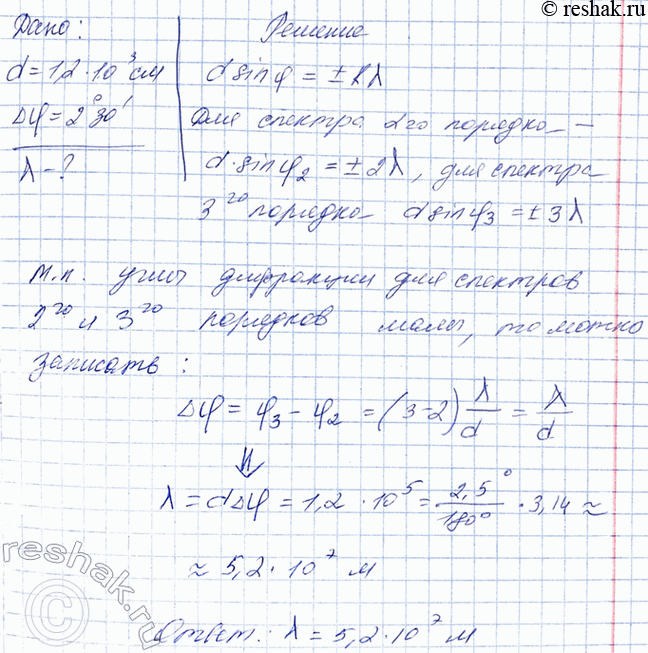 © reshak.ru
Дано:
Решение
d = 1,2 · 10³ см
d sin φ = ± kλ
Δφ = 2°30'
Для спектра 2го порядка —
λ - ?
d · sin φ₂ = ± 2λ, для спектра
3го порядка d sin φ₃ = ± 3λ
т.к. углы дифракции для спектров
2го и 3го порядков малы, то можно
записать:
Δφ = φ₃ - φ₂ = (3-2) λ/d = λ/d
⇓
λ = dΔφ = 1,2 · 10⁵ = 2,5°/180° · 3,14 ≈
≈ 5,2 · 10⁷ м
Ответ: λ = 5,2 · 10⁷ м
reshak.ru
©